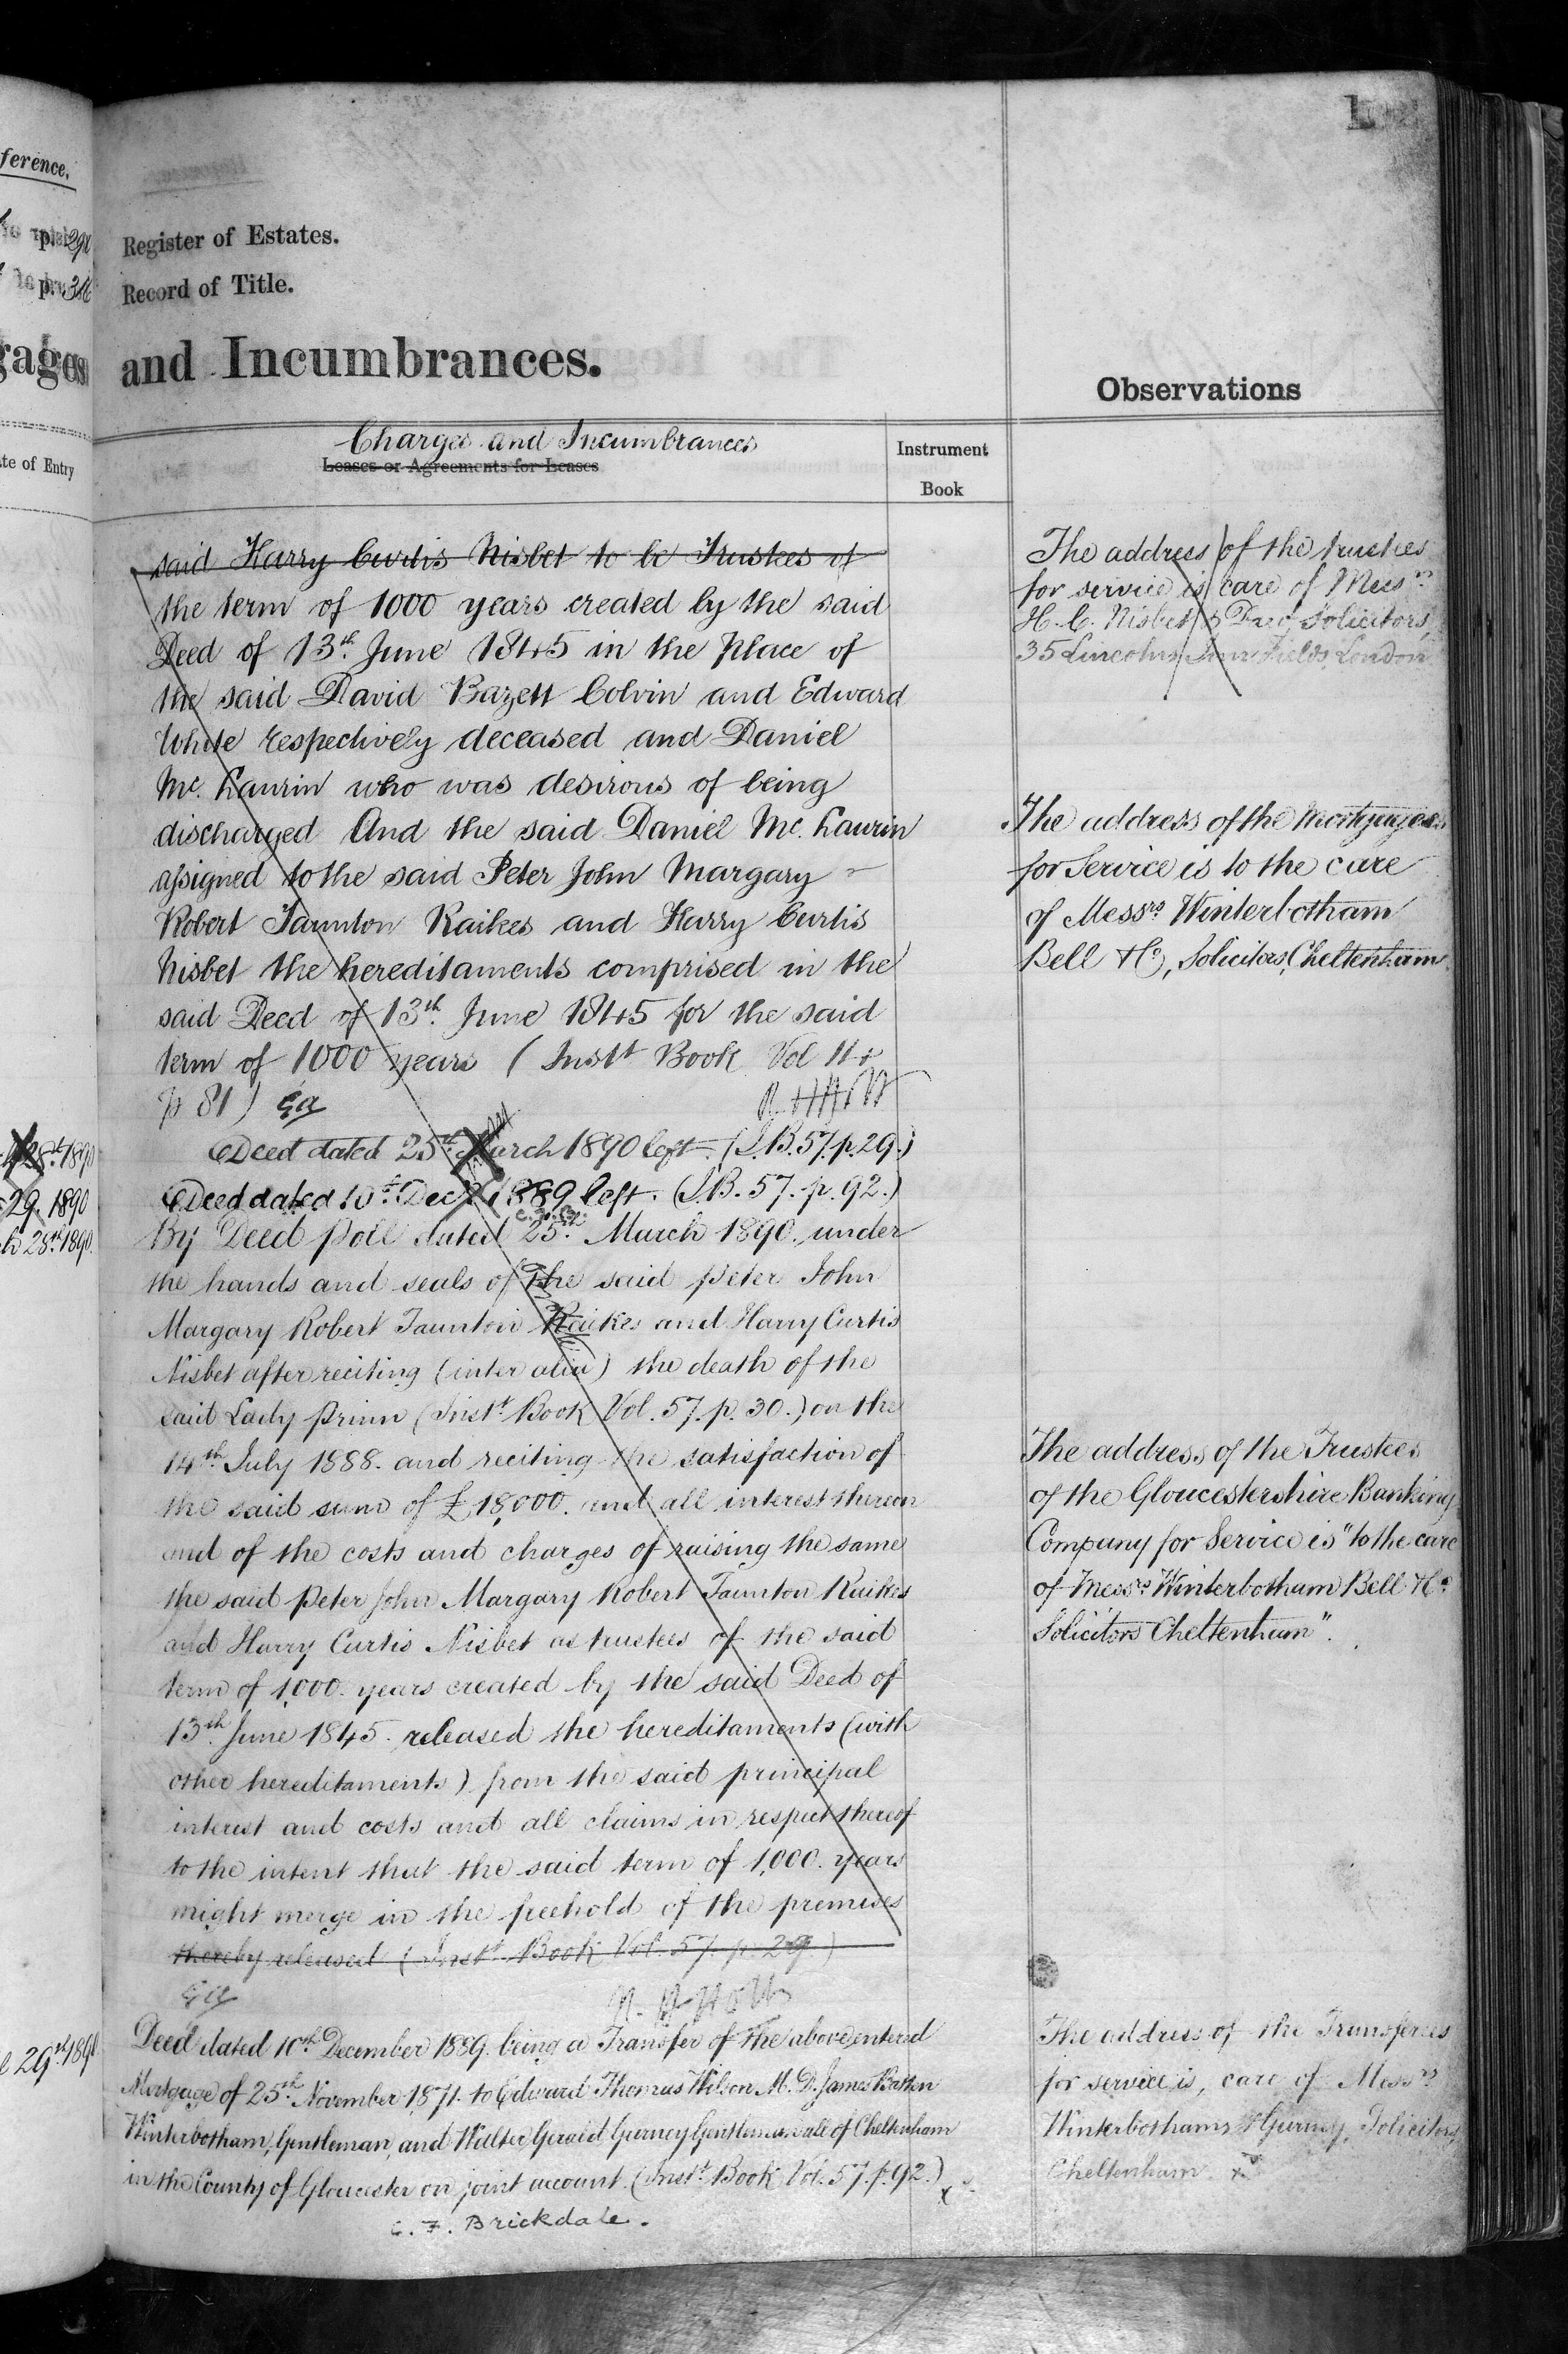 ference.
p. 291
p. 316
gages
te of Entry
Register of Estates.
Record of Title.
and Incumbrances.
Observations
Charges and Incumbrances
Leases or Agreements for Leases
Instrument
Book
said Harry Curtis Nisbet to be Trustees of
the term of 1000 years created by the said
Deed of 13th June 1845 in the place of
the said David Bazett Colvin and Edward
White respectively deceased and Daniel
Mc. Laurin who was desirous of being
discharged And the said Daniel Mc. Laurin
assigned to the said Peter John Margary
Robert Taunton Raikes and Harry Curtis
Nisbet the hereditaments comprised in the
said Deed of 13th June 1845 for the said
term of 1000 years (Instt Book Vol
p 81)
Deed dated 25th March 1890 left. (I.B. 57. p. 29.)
Deed dated 10th Decr 1889 left. (I.B. 57. p. 92.)
By Deed Poll dated 25th March 1890 under
the hands and seals of the said Peter John
Margary Robert Taunton Raikes and Harry Curtis
Nisbet after reciting (inter alia) the death of the
said Lady Prinn (Instt Book Vol. 57. p. 30.) on the
14th July 1888. and reciting the satisfaction of
the said sum of £18,000. and all interest thereon
and of the costs and charges of raising the same
the said Peter John Margary Robert Taunton Raikes
and Harry Curtis Nisbet as trustees of the said
term of 1,000 years created by the said Deed of
13th June 1845. released the hereditaments (with
other hereditaments) from the said principal
interest and costs and all claims in respect thereof
to the intent that the said term of 1,000. years
might merge in the freehold of the premises
thereby released (Instt Book Vol. 57. p. 29)
Deed dated 10th December 1889. being a Transfer of the above entered
Mortgage of 25th November 1871. to Edward Thomas Wilson M.D. James Batten
Winterbotham, Gentleman, and Walter Gerald Gurney Gentleman all of Cheltenham
in the County of Gloucester on joint account. (Instt Book Vol. 57. p. 92.)
C. F. Brickdale.
28th 1890
29. 1890
h 28th 1890.
29th 1890
The address of the trustees
for service is care of Messrs
H. C. Nisbet & Solicitors
35 Lincolns Inn Fields, London
The address of the Mortgagees
for Service is to the care
of Messrs Winterbotham
Bell & Co, Solicitors Cheltenham
The address of the Trustees
of the Gloucestershire Banking
Company for Service is "to the care
of Messrs Winterbotham Bell & Co
Solicitors Cheltenham".
The address of the Transferees
for service is, care of Messrs
Winterbothams & Gurney, Solicitors,
Cheltenham